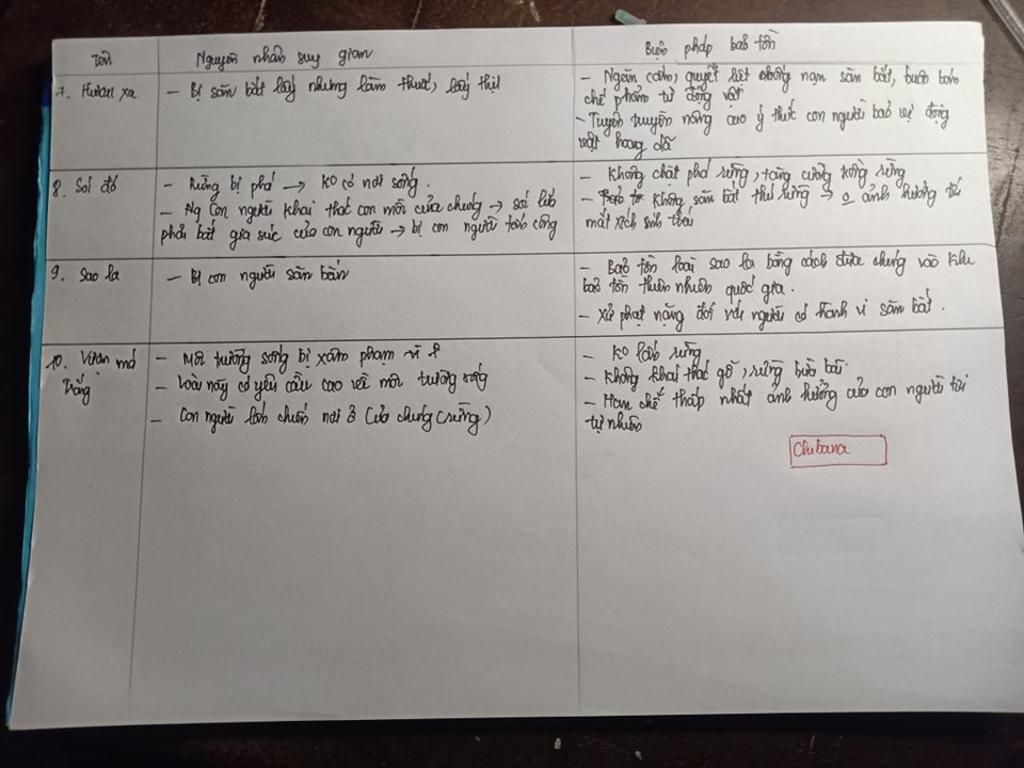 Tên
Nguyên nhân suy giảm
Biện pháp bảo tồn
7. Hươu xạ
- Bị săn bắt lấy nhung làm thuốc, lấy thịt
- Ngăn cấm, quyết liệt chống nạn săn bắt, buôn bán
chế phẩm từ động vật
- Tuyên truyền nâng cao ý thức con người bảo vệ động
vật hoang dã
8. Sói đỏ
- Rừng bị phá → ko có nơi sống.
- Ng Con người khai thác con mồi của chúng → sói
phải bắt gia súc của con người → bị con người tấn công
- Không chặt phá rừng, tăng cường trồng rừng
- Không săn bắt thú rừng → ảnh hưởng tới
mắt xích sinh thái
9. Sao la
- Bị con người săn bắn
- Bảo tồn loài sao la bằng cách đưa chúng vào khu
bảo tồn thiên nhiên quốc gia.
- Xử phạt nặng đối với người có hành vi săn bắt.
10. Vượn má
trắng
- Môi trường sống bị xâm phạm vì
- Loài này có yêu cầu cao về môi trường sống
- Con người lấn chiếm nơi ở của chúng (rừng)
- Ko phá rừng
- Không khai thác gỗ, rừng bừa bãi.
- Hạn chế thấp nhất ảnh hưởng của con người tới
tự nhiên
Chibana